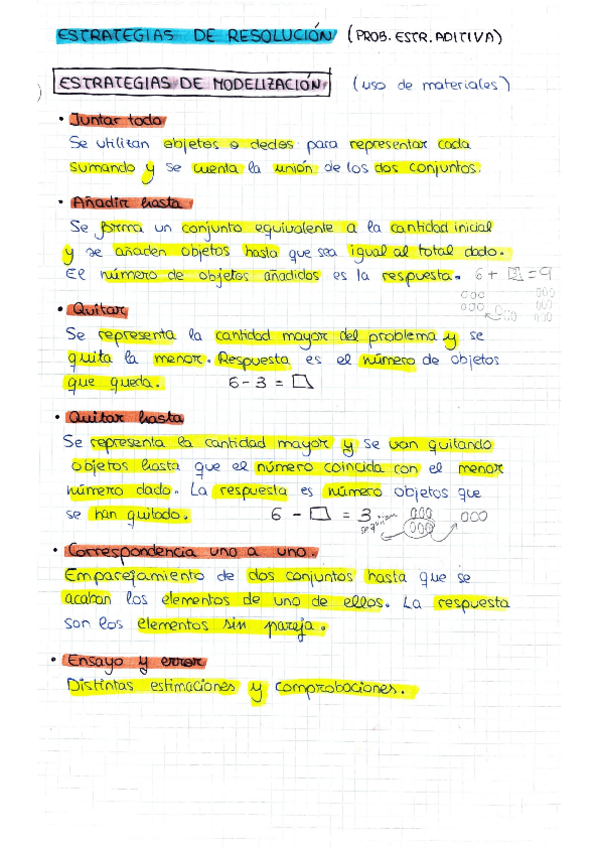 ESTRATEGIAS DE RESOLUCIÓN (PROB. ESTR. ADITIVA)
ESTRATEGIAS DE MODELIZACIÓN (uso de materiales)
• Juntar todo
Se utilizan objetos o dedos para representar cada
sumando y se cuenta la unión de los dos conjuntos.
• Añadir hasta
Se forma un conjunto equivalente a la cantidad inicial
y se añaden objetos hasta que sea igual al total dado.
El número de objetos añadidos es la respuesta. 6 + □ = 9
• Quitar
Se representa la cantidad mayor del problema y se
quita la menor. Respuesta es el número de objetos
que queda. 6 - 3 = □
• Quitar hasta
Se representa la cantidad mayor y se van quitando
objetos hasta que el número coincida con el menor
número dado. La respuesta es número objetos que
se han quitado. 6 - □ = 3
• Correspondencia uno a uno.
Emparejamiento de dos conjuntos hasta que se
acaban los elementos de uno de ellos. La respuesta
son los elementos sin pareja.
• Ensayo y error
Distintas estimaciones y comprobaciones.